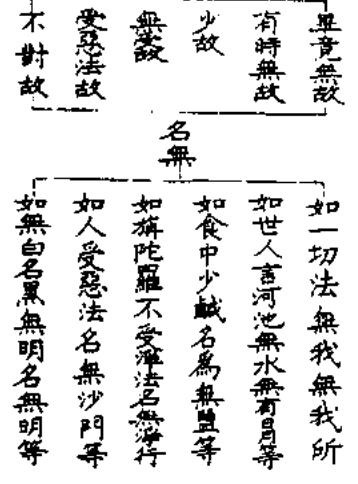 畢竟無故
有時無故
少故
無受故
受惡法故
不對故
名無
如一切法無我無我所
如世人言河池無水無有日月等
如食中少鹹名為無鹽等
如旃陀羅不受淨法名無淨行
如人受惡法名無沙門等
如無白名黑無明名無明等